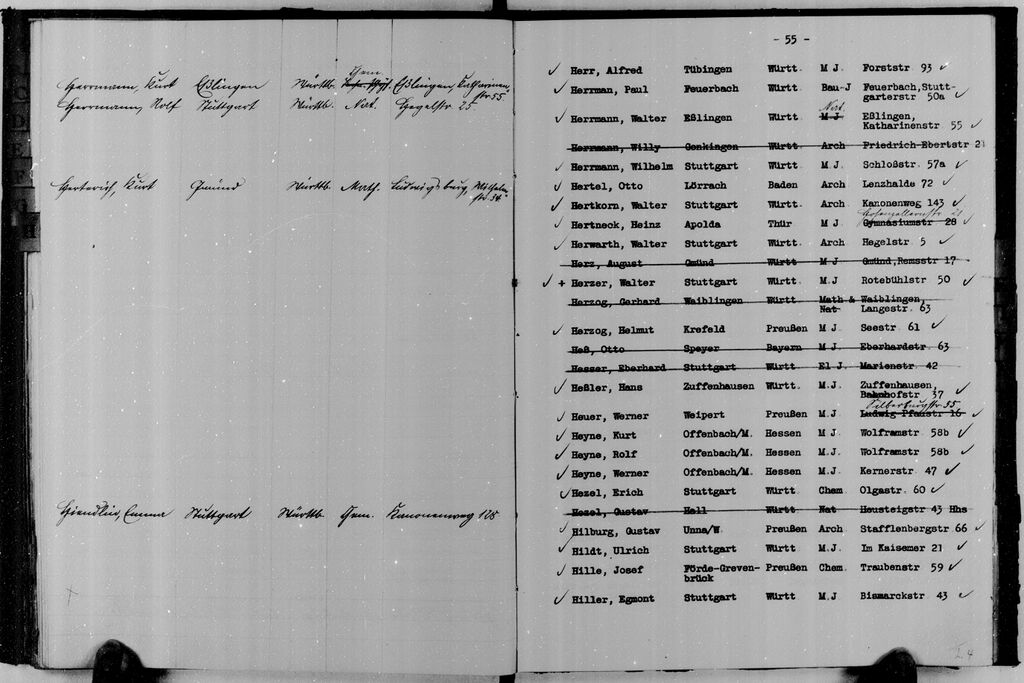 Herrmann, Kurt Eßlingen Württb. Chem. Eßlingen, Katharinen-
str 55
Herrmann, Rolf Stuttgart Württb. Nat. Hegelstr. 25
Herterich, Kurt Gmünd Württb. Math. Ludwigsburg, Wilhelm-
str. 34
Emma Stuttgart Württb. Chem. Kanonenweg 128
- 55 -
✓ Herr, Alfred Tübingen Württ. M J. Forststr 93 ✓
✓ Herrman, Paul Feuerbach Württ. Bau-J Feuerbach, Stutt-
garterstr 50a ✓
Nat.
✓ Herrmann, Walter Eßlingen Württ M J. Eßlingen,
Katharinenstr 55 ✓
Herrmann, Willy Genkingen Württ. Arch Friedrich-Ebertstr 21
✓ Herrmann, Wilhelm Stuttgart Württ. M J. Schloßstr. 57a ✓
✓ Hertel, Otto Lörrach Baden Arch Lenzhalde 72 ✓
✓ Hertkorn, Walter Stuttgart Württ. Arch. Kanonenweg 143 ✓
Hohenzollernstr 21
✓ Hertneck, Heinz Apolda Thür M J. Gymnasiumstr 28 ✓
✓ Herwarth, Walter Stuttgart Württ. Arch Hegelstr 5 ✓
Herz, August Gmünd Württ M J Gmünd, Remsstr 17
✓ + Herzer, Walter Stuttgart Württ. M.J Rotebühlstr 50 ✓
Herzog, Gerhard Waiblingen Württ Math & Waiblingen,
Nat Langestr. 63
✓ Herzog, Helmut Krefeld Preußen M J. Seestr 61 ✓
Heß, Otto Speyer Bayern M J. Eberhardstr 63
Hesser, Eberhard Stuttgart Württ El J. Marienstr 42
✓ Heßler, Hans Zuffenhausen Württ. M.J. Zuffenhausen,
Bahnhofstr 37 ✓
Silberburgstr. 55
✓ Heuer, Werner Weipert Preußen M J. Ludwig Pfaustr 16 ✓
✓ Heyne, Kurt Offenbach/M. Hessen M J. Wolframstr 58b ✓
✓ Heyne, Rolf Offenbach/M. Hessen M.J. Wolframstr 58b ✓
✓ Heyne, Werner Offenbach/M. Hessen M J. Kernerstr 47 ✓
✓ Hezel, Erich Stuttgart Württ Chem Olgastr. 60 ✓
Hezel, Gustav Hall Württ Nat Heusteigstr 43 Hhs
✓ Hilburg, Gustav Unna/W. Preußen Arch Stafflenbergstr 66 ✓
✓ Hildt, Ulrich Stuttgart Württ. M.J. Im Kaisemer 21 ✓
✓ Hille, Josef Förde-Greven- Preußen Chem. Traubenstr 59 ✓
brück
✓ Hiller, Egmont Stuttgart Württ M J Bismarckstr 43 ✓